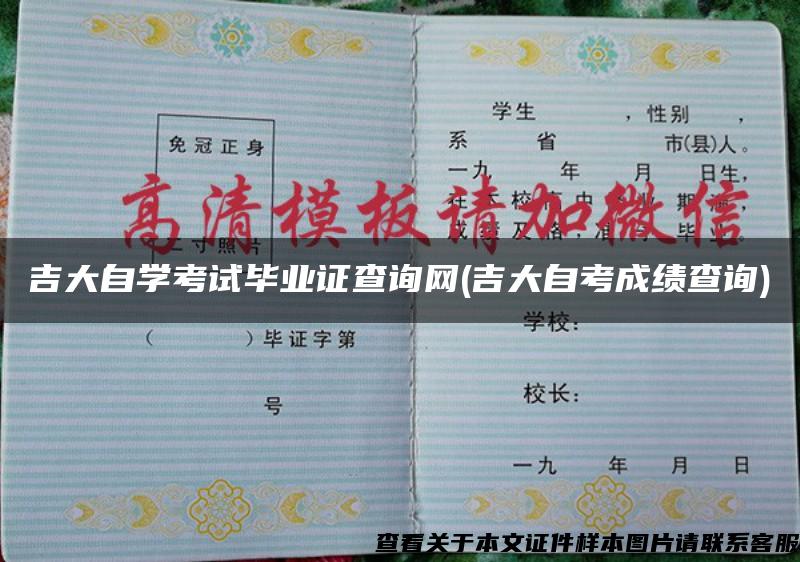 免冠正身
二寸照片
（ ）毕证字第
号
学生 ，性别 ，
系 省 市(县)人。
一九 年 月 日生，
高清模板请加微信
吉大自学考试毕业证查询网(吉大自考成绩查询)
学校：
校长：
一九 年 月 日
查看关于本文证件样本图片请联系客服